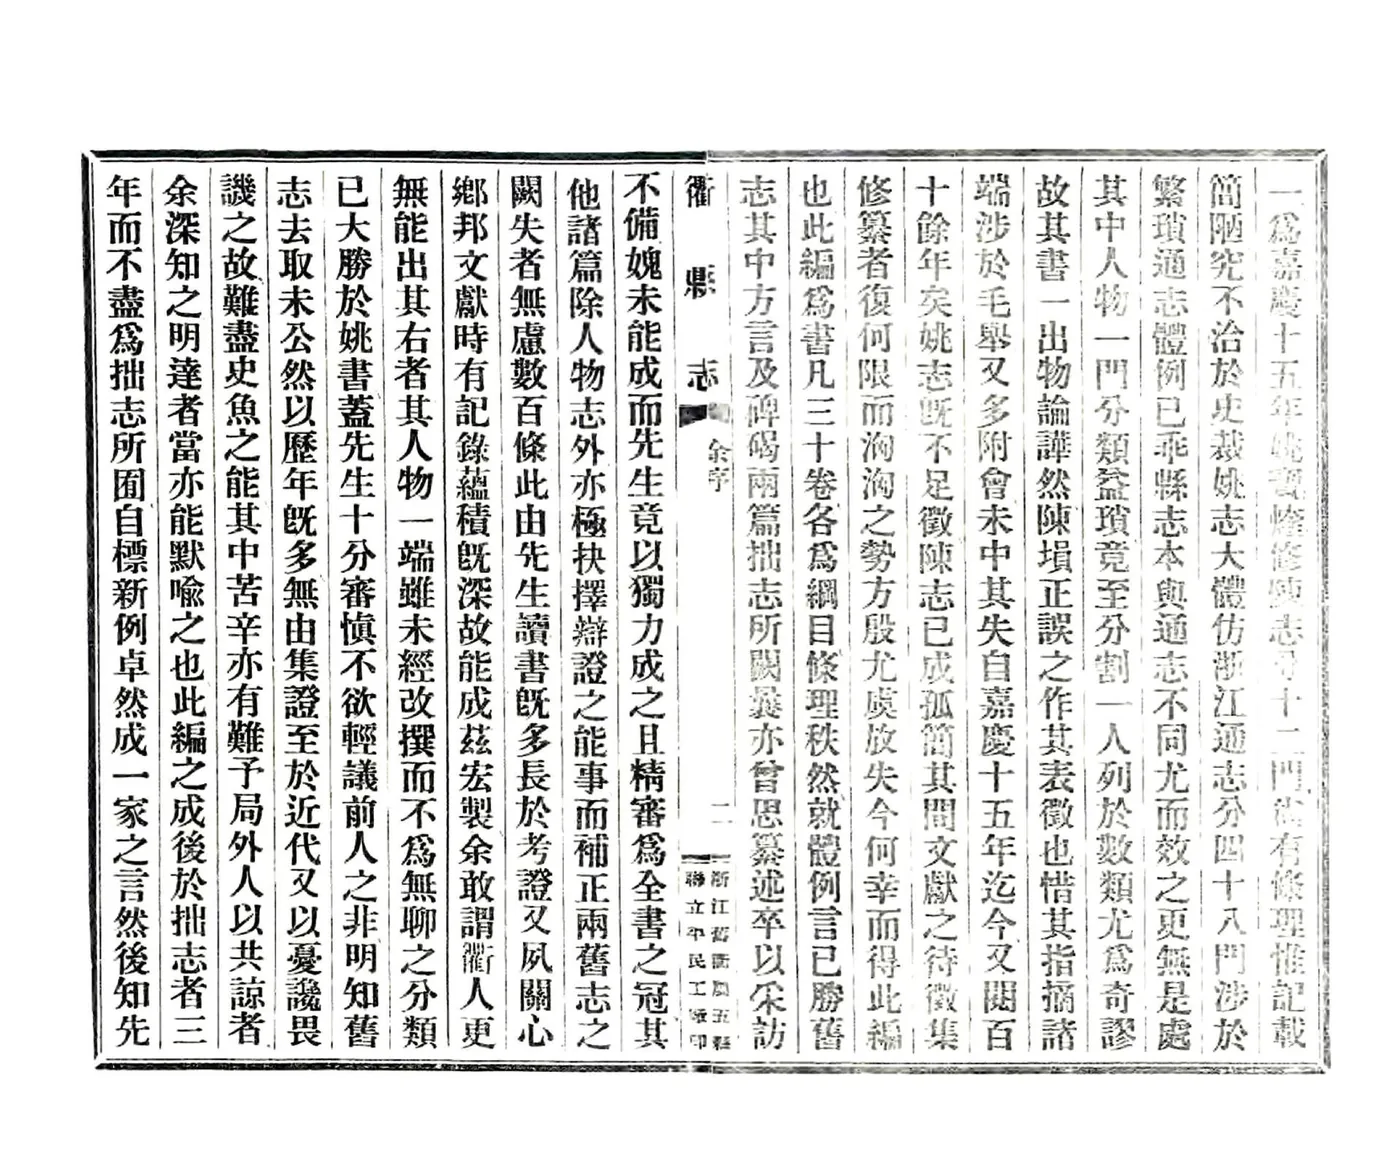 一爲嘉慶十五年姚寶煃修陳志分十二門尚有條理惟記載
簡陋究不洽於史裁姚志大體仿浙江通志分四十八門涉於
繁瑣通志體例已乖縣志本與通志不同尤而效之更無是處
其中人物一門分類益瑣竟至分割一人列於數類尤爲奇謬
故其書一出物論譁然陳塤正誤之作其表徵也惜其指摘諸
端涉於毛舉又多附會未中其失自嘉慶十五年迄今又閱百
十餘年矣姚志旣不足徵陳志已成孤簡其間文獻之待徵集
修纂者復何限而洶洶之勢方殷尤虞放失今何幸而得此編
也此編爲書凡三十卷各爲綱目條理秩然就體例言已勝舊
志其中方言及碑碣兩篇拙志所闕曩亦曾思纂述卒以采訪
衢縣志
余序
二
浙江舊衢屬五縣
聯立平民工廠印
不備媿未能成而先生竟以獨力成之且精審爲全書之冠其
他諸篇除人物志外亦極抉擇辯證之能事而補正兩舊志之
闕失者無慮數百條此由先生讀書旣多長於考證又夙關心
鄉邦文獻時有記錄蘊積旣深故能成茲宏製余敢謂衢人更
無能出其右者其人物一端雖未經改撰而不爲無聊之分類
已大勝於姚書蓋先生十分審愼不欲輕議前人之非明知舊
志去取未公然以歷年旣多無由集證至於近代又以憂讒畏
譏之故難盡史魚之能其中苦辛亦有難予局外人以共諒者
余深知之明達者當亦能默喻之也此編之成後於拙志者三
年而不盡爲拙志所囿自標新例卓然成一家之言然後知先